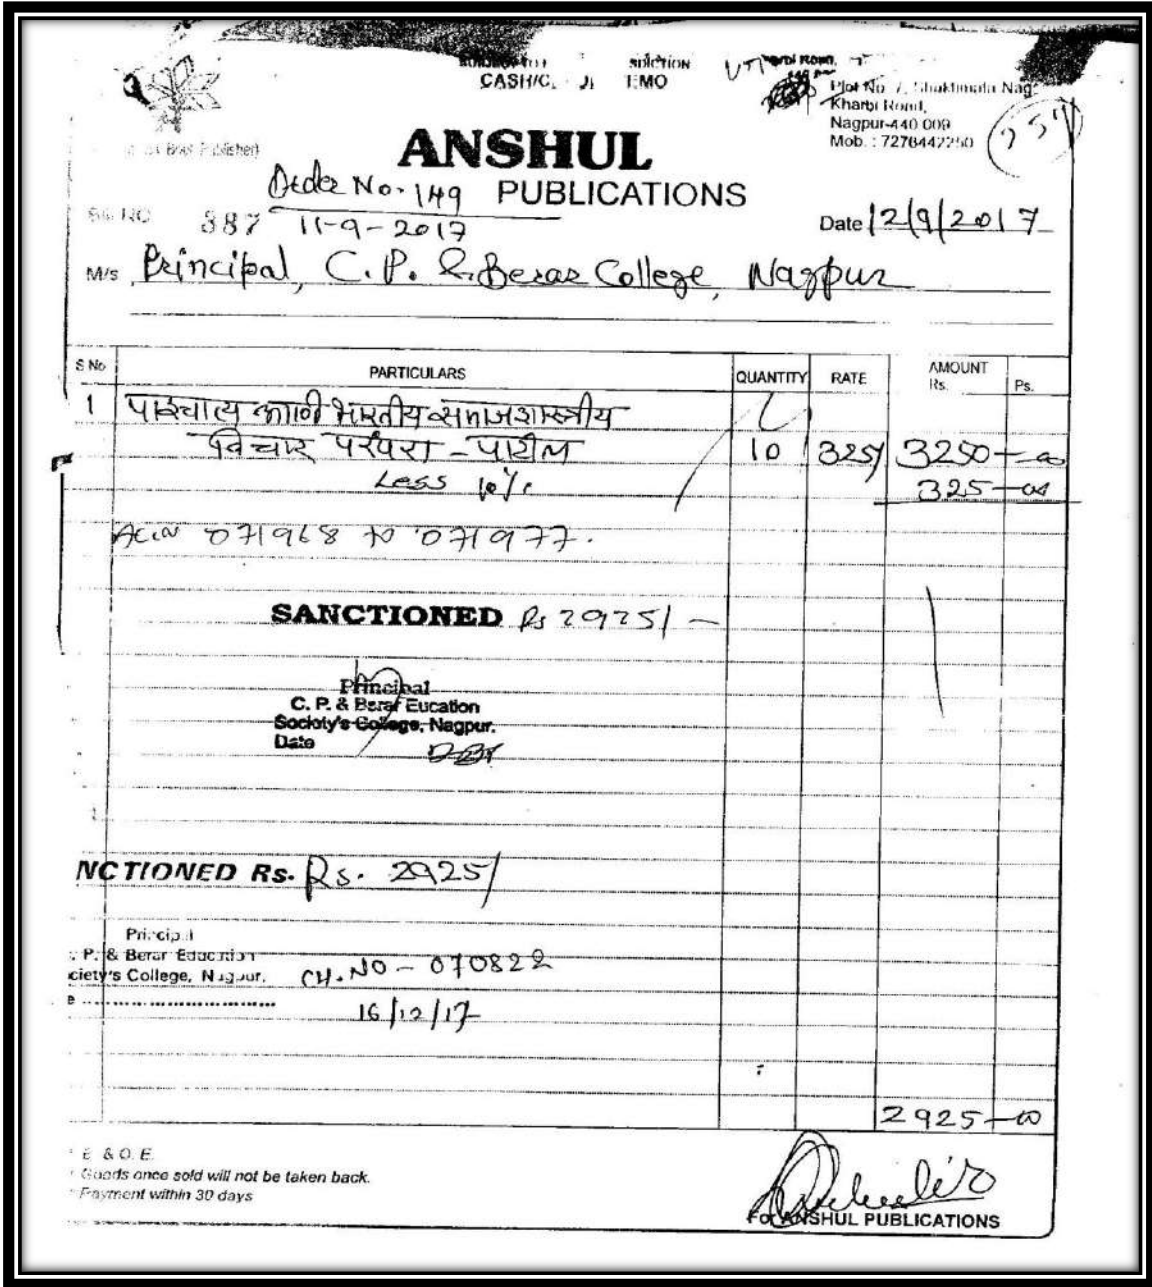 CASH/C
Plot No 7, Shaktimata Nag
Kharbi Road,
Nagpur-440 009
Mob. : 7276442250
ANSHUL
PUBLICATIONS
Order No. 149
11-9-2017
Bill NO 387
Date 12/9/2017
M/s Principal, C.P. & Berar College, Nagpur
S No PARTICULARS QUANTITY RATE AMOUNT
Rs. Ps.
1 पाश्चात्य आणि भारतीय समाजशास्त्रीय
विचार परंपरा - पाटील 10 325/ 3250-00
Less 10% 325-00
Acc.N 071968 to 071977.
SANCTIONED Rs 2925/-
Principal
C. P. & Berar Eucation
Society's College, Nagpur.
Date
NCTIONED Rs. Rs. 2925/
Principal
P. & Berar Education
ciety's College, Nagpur.
CH.NO - 070822
16/12/17
2925-00
E. & O. E.
Goods once sold will not be taken back.
Payment within 30 days
For ANSHUL PUBLICATIONS